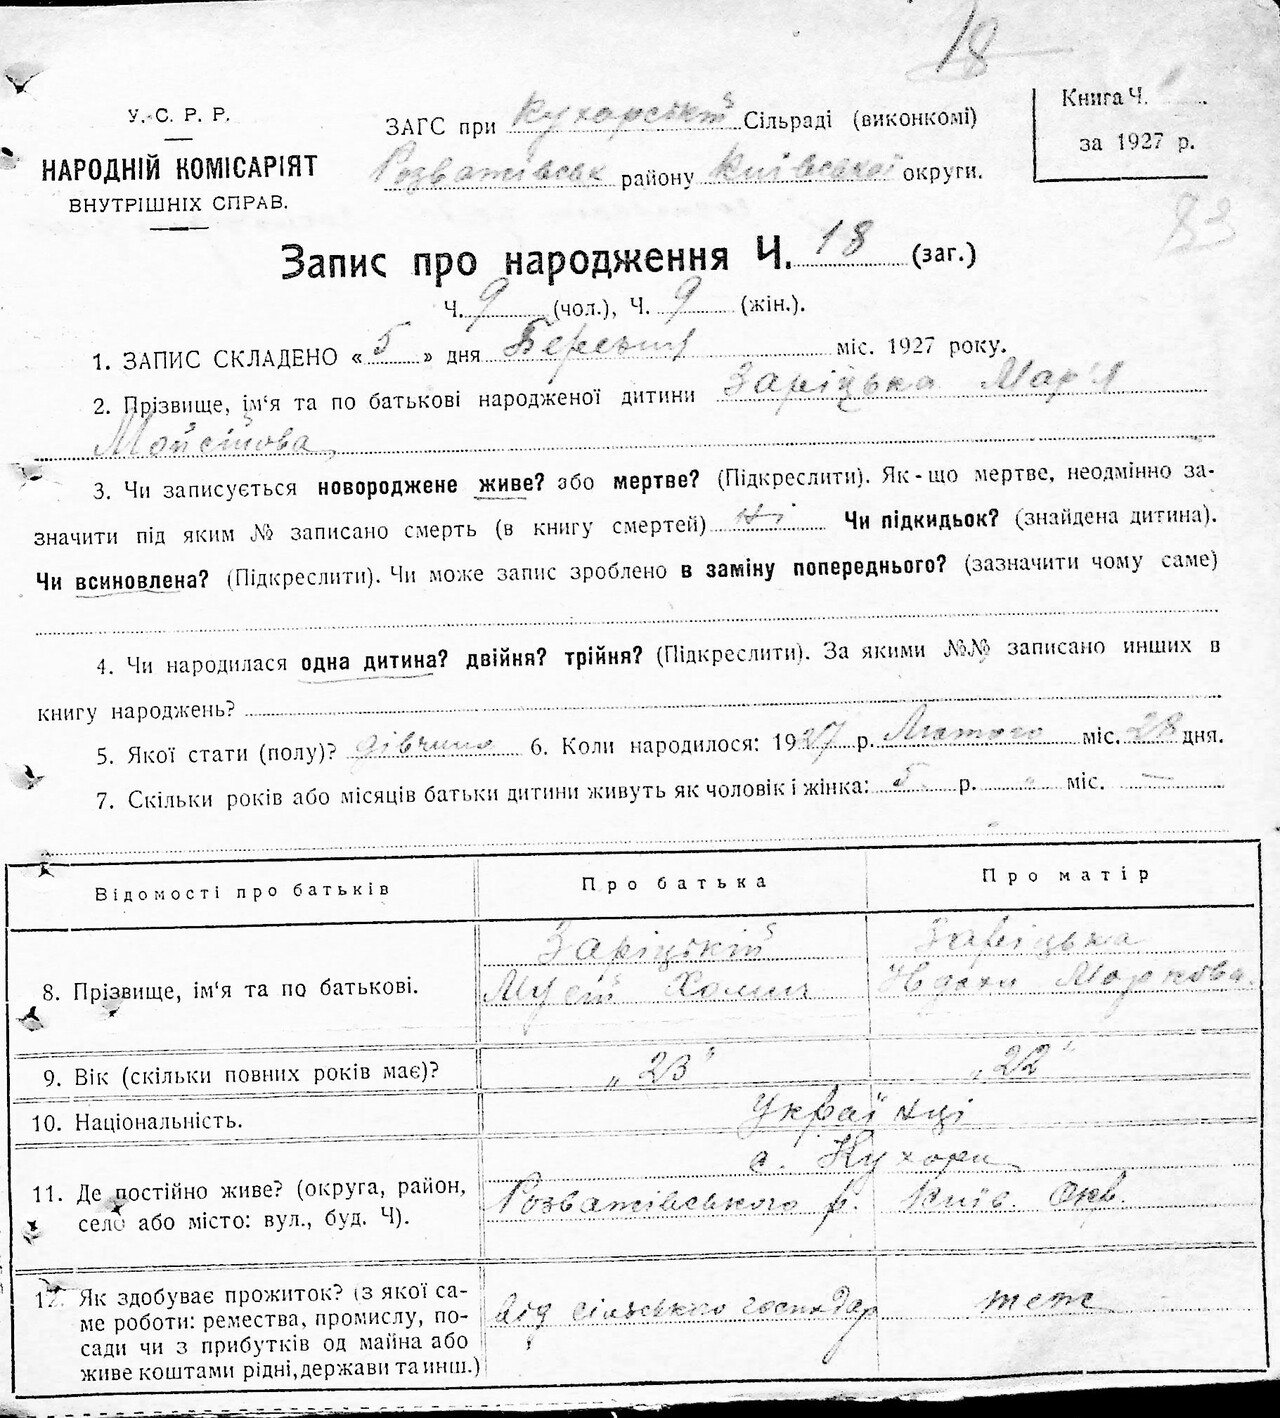 18
У.С.Р.Р.
НАРОДНІЙ КОМІСАРІЯТ
ВНУТРІШНІХ СПРАВ.
ЗАГС при Кухарській Сільраді (виконкомі)
Розважівськ району Київської округи.
Книга Ч.
за 1927 р.
83
Запис про народження Ч. 18 (заг.)
Ч. 9 (чол.), Ч. 9 (жін.).
1. ЗАПИС СКЛАДЕНО « 5 » дня Березня міс. 1927 року.
2. Прізвище, ім‘я та по батькові народженої дитини Заріцька Мар'я
Мойсійова
3. Чи записується новороджене живе? або мертве? (Підкреслити). Як-що мертве, неодмінно за-
значити під яким № записано смерть (в книгу смертей) Ні Чи підкидьок? (знайдена дитина).
Чи всиновлена? (Підкреслити). Чи може запис зроблено в заміну попереднього? (зазначити чому саме)
4. Чи народилася одна дитина? двійня? трійня? (Підкреслити). За якими №№ записано инших в
книгу народжень?
5. Якої стати (полу)? дівчина 6. Коли народилося: 1927 р. Лютого міс. 28 дня.
7. Скільки років або місяців батьки дитини живуть як чоловік і жінка: 5 р. „ міс. —
Відомості про батьків
Про батька
Про матір
8. Прізвище, ім‘я та по батькові.
Заріцький
Мусій Хомич
Заріцька
Маркова.
9. Вік (скільки повних років має)?
„23“
„22“
10. Національність.
Українці
11. Де постійно живе? (округа, район,
село або місто: вул., буд. Ч).
с. Кухари
Розважівського р. Київ. Окр.
12. Як здобуває прожиток? (з якої са-
ме роботи: ремества, промислу, по-
сади чи з прибутків од майна або
живе коштами рідні, держави та инш.)
від сільського господар
теж